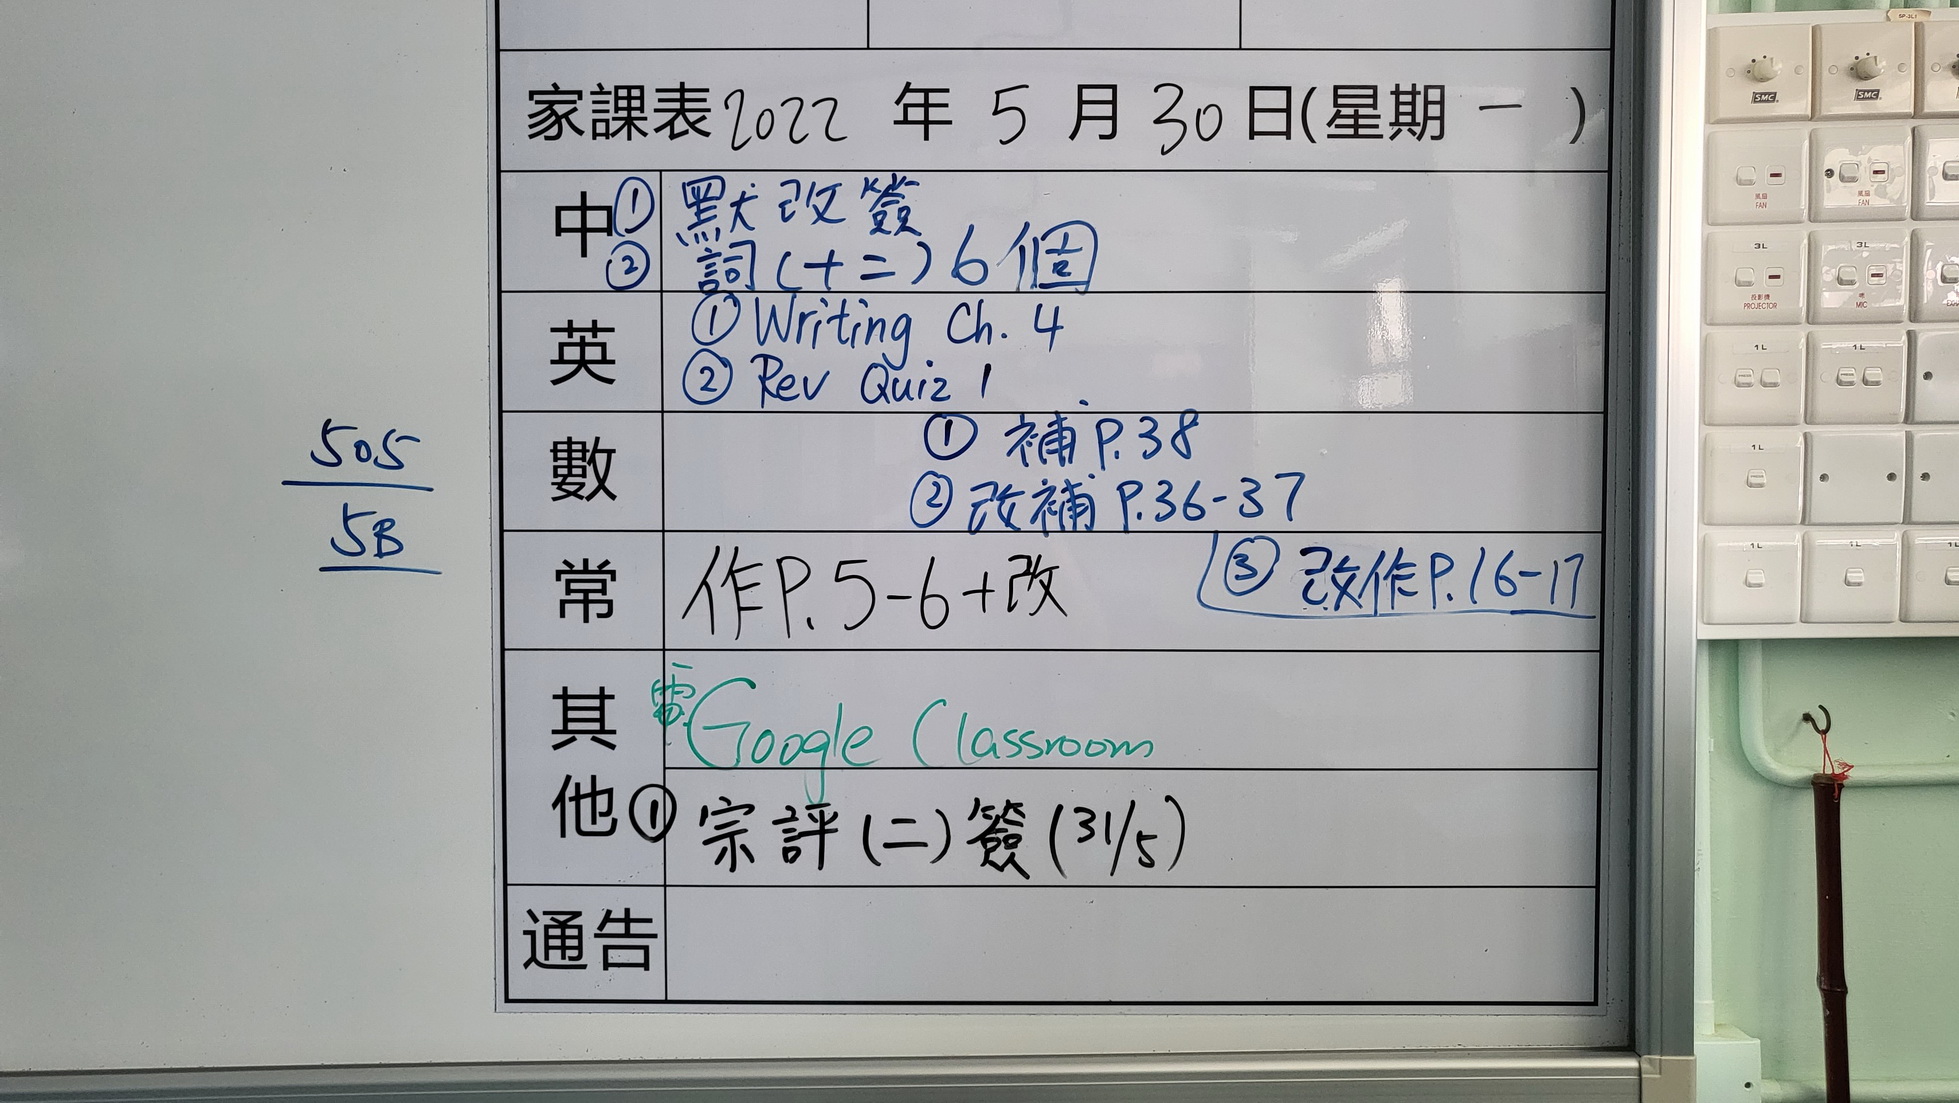 家課表 2022 年 5 月 30 日(星期 一 )
中 ① 默改簽
② 詞(十二)6個
英 ① Writing Ch. 4
② Rev Quiz 1
數 ① 補 P.38
② 改補 P.36-37
③ 改作P.16-17
常 作P.5-6+改
其他 電 Google Classroom
① 宗評(二)簽(31/5)
通告
505
5B
SP-3L1
SMC
SMC
風扇
FAN
風扇
FAN
3L
3L
投影機
PROJECTOR
咪
MIC
1L
1L
1L
1L
1L
1L